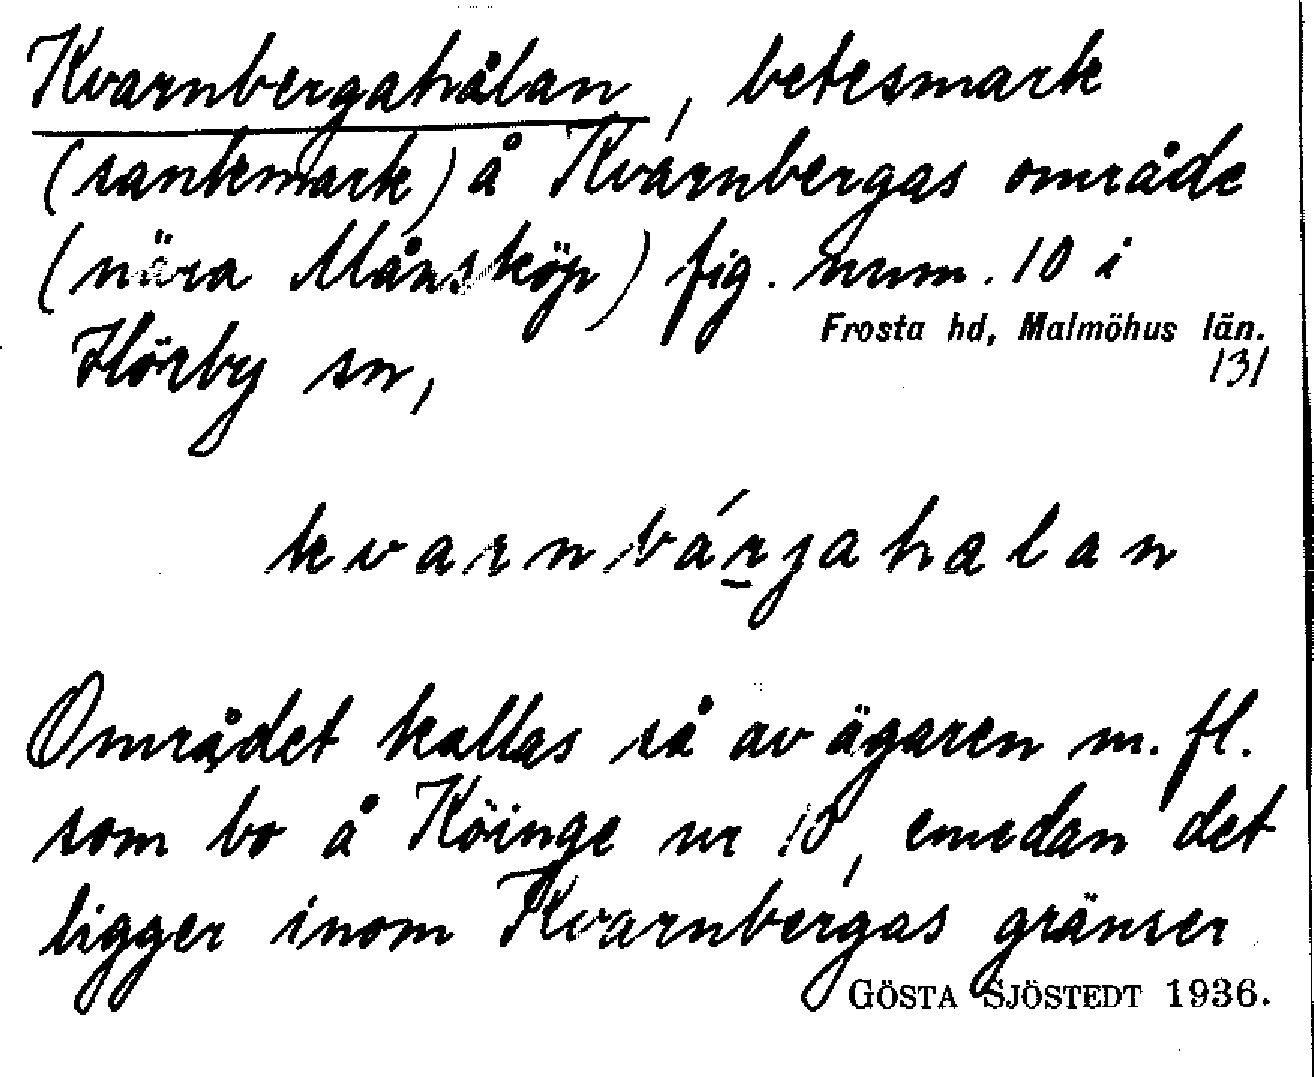 Kvarnbergahålan, betesmark
(sankmark) å Kvarnbergas område
(nära Månsköp) fig. num. 10 i
Frosta hd, Malmöhus län.
Hörby sn,
131
kvarnbárjahalan
Området kallas så av ägaren m. fl.
som bo å Köinge nr 10, emedan det
ligger inom Kvarnbergas gränser
GÖSTA SJÖSTEDT 1936.